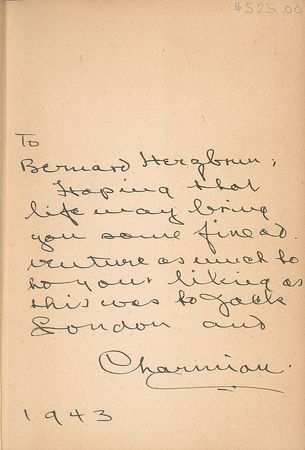 $525.00
To
Bernard Herzbrun,
Hoping that
life may bring
you some fine ad
venture as much to
to your liking as
this was to Jack
London and
Charmian.
1943